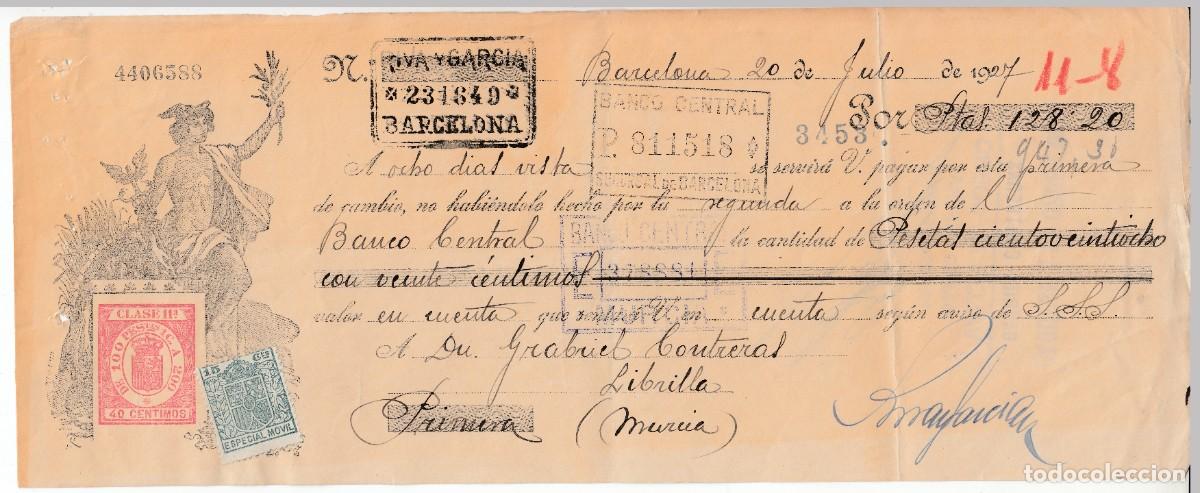 4406588
N. RIVA Y GARCIA
231649
BARCELONA
Barcelona 20 de Julio de 1927
11-8
Por Ptas. 128'20
BANCO CENTRAL
P. 811518
SUCURSAL DE BARCELONA
3453
A ocho dias vista se servirá V. pagar por esta primera
de cambio, no habiéndolo hecho por la segunda a la orden del
Banco Central la cantidad de Pesetas cientoveintiocho
con veinte céntimos
BANCO CENTRAL
valor en cuenta que sentará V. en cuenta según aviso de S.S.S.
A Dn. Grabriel Contreras
Librilla
Primera (Murcia)
CLASE 11ª
DE 100 PESETAS
40 CENTIMOS
15 CS
ESPECIAL MOVIL
todocoleccion